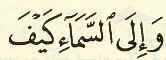 وَإِلَى ٱلسَّمَآءِ كَيْفَ